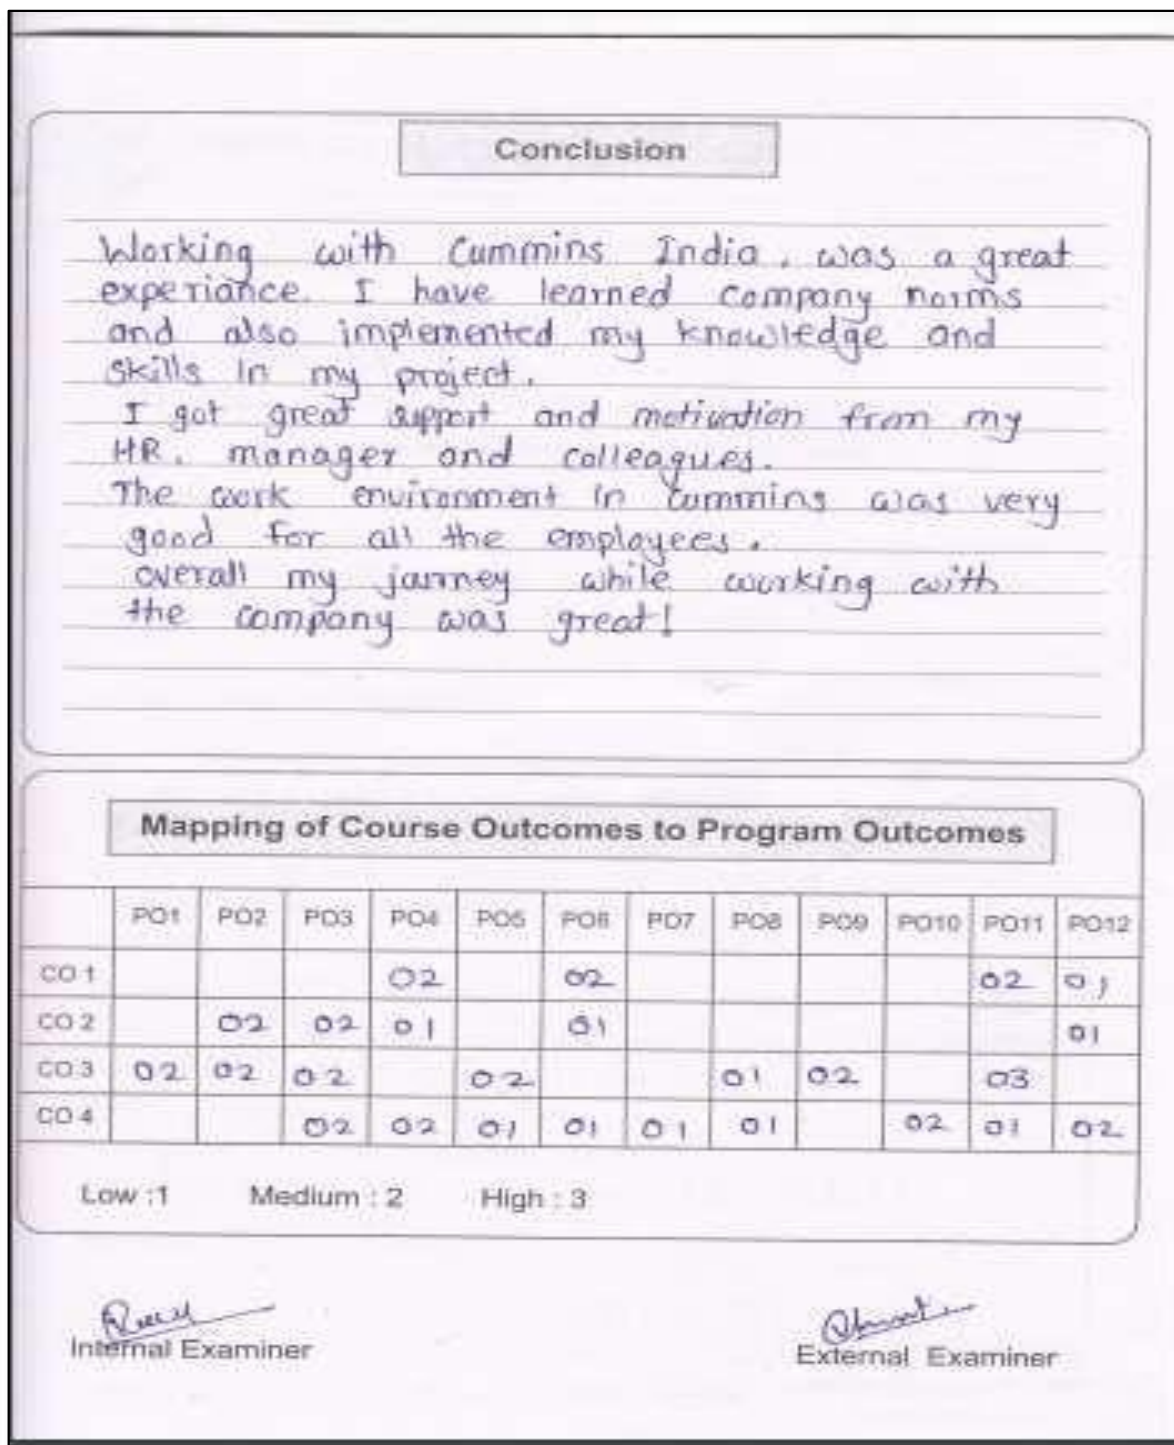 Conclusion
Working with Cummins India. was a great
experiance. I have learned company norms
and also implemented my knowledge and
skills in my project.
I got great support and motivation from my
HR. manager and colleagues.
The work environment in Cummins was very
good for all the employees.
overall my jarney while working with
the company was great!
Mapping of Course Outcomes to Program Outcomes
PO1 PO2 PO3 PO4 PO5 PO6 PO7 PO8 PO9 PO10 PO11 PO12
CO 1 02 02 02 01
CO 2 02 02 01 01 01
CO 3 02 02 02 02 01 02 03
CO 4 02 02 01 01 01 01 02 01 02
Low :1 Medium : 2 High : 3
Internal Examiner External Examiner